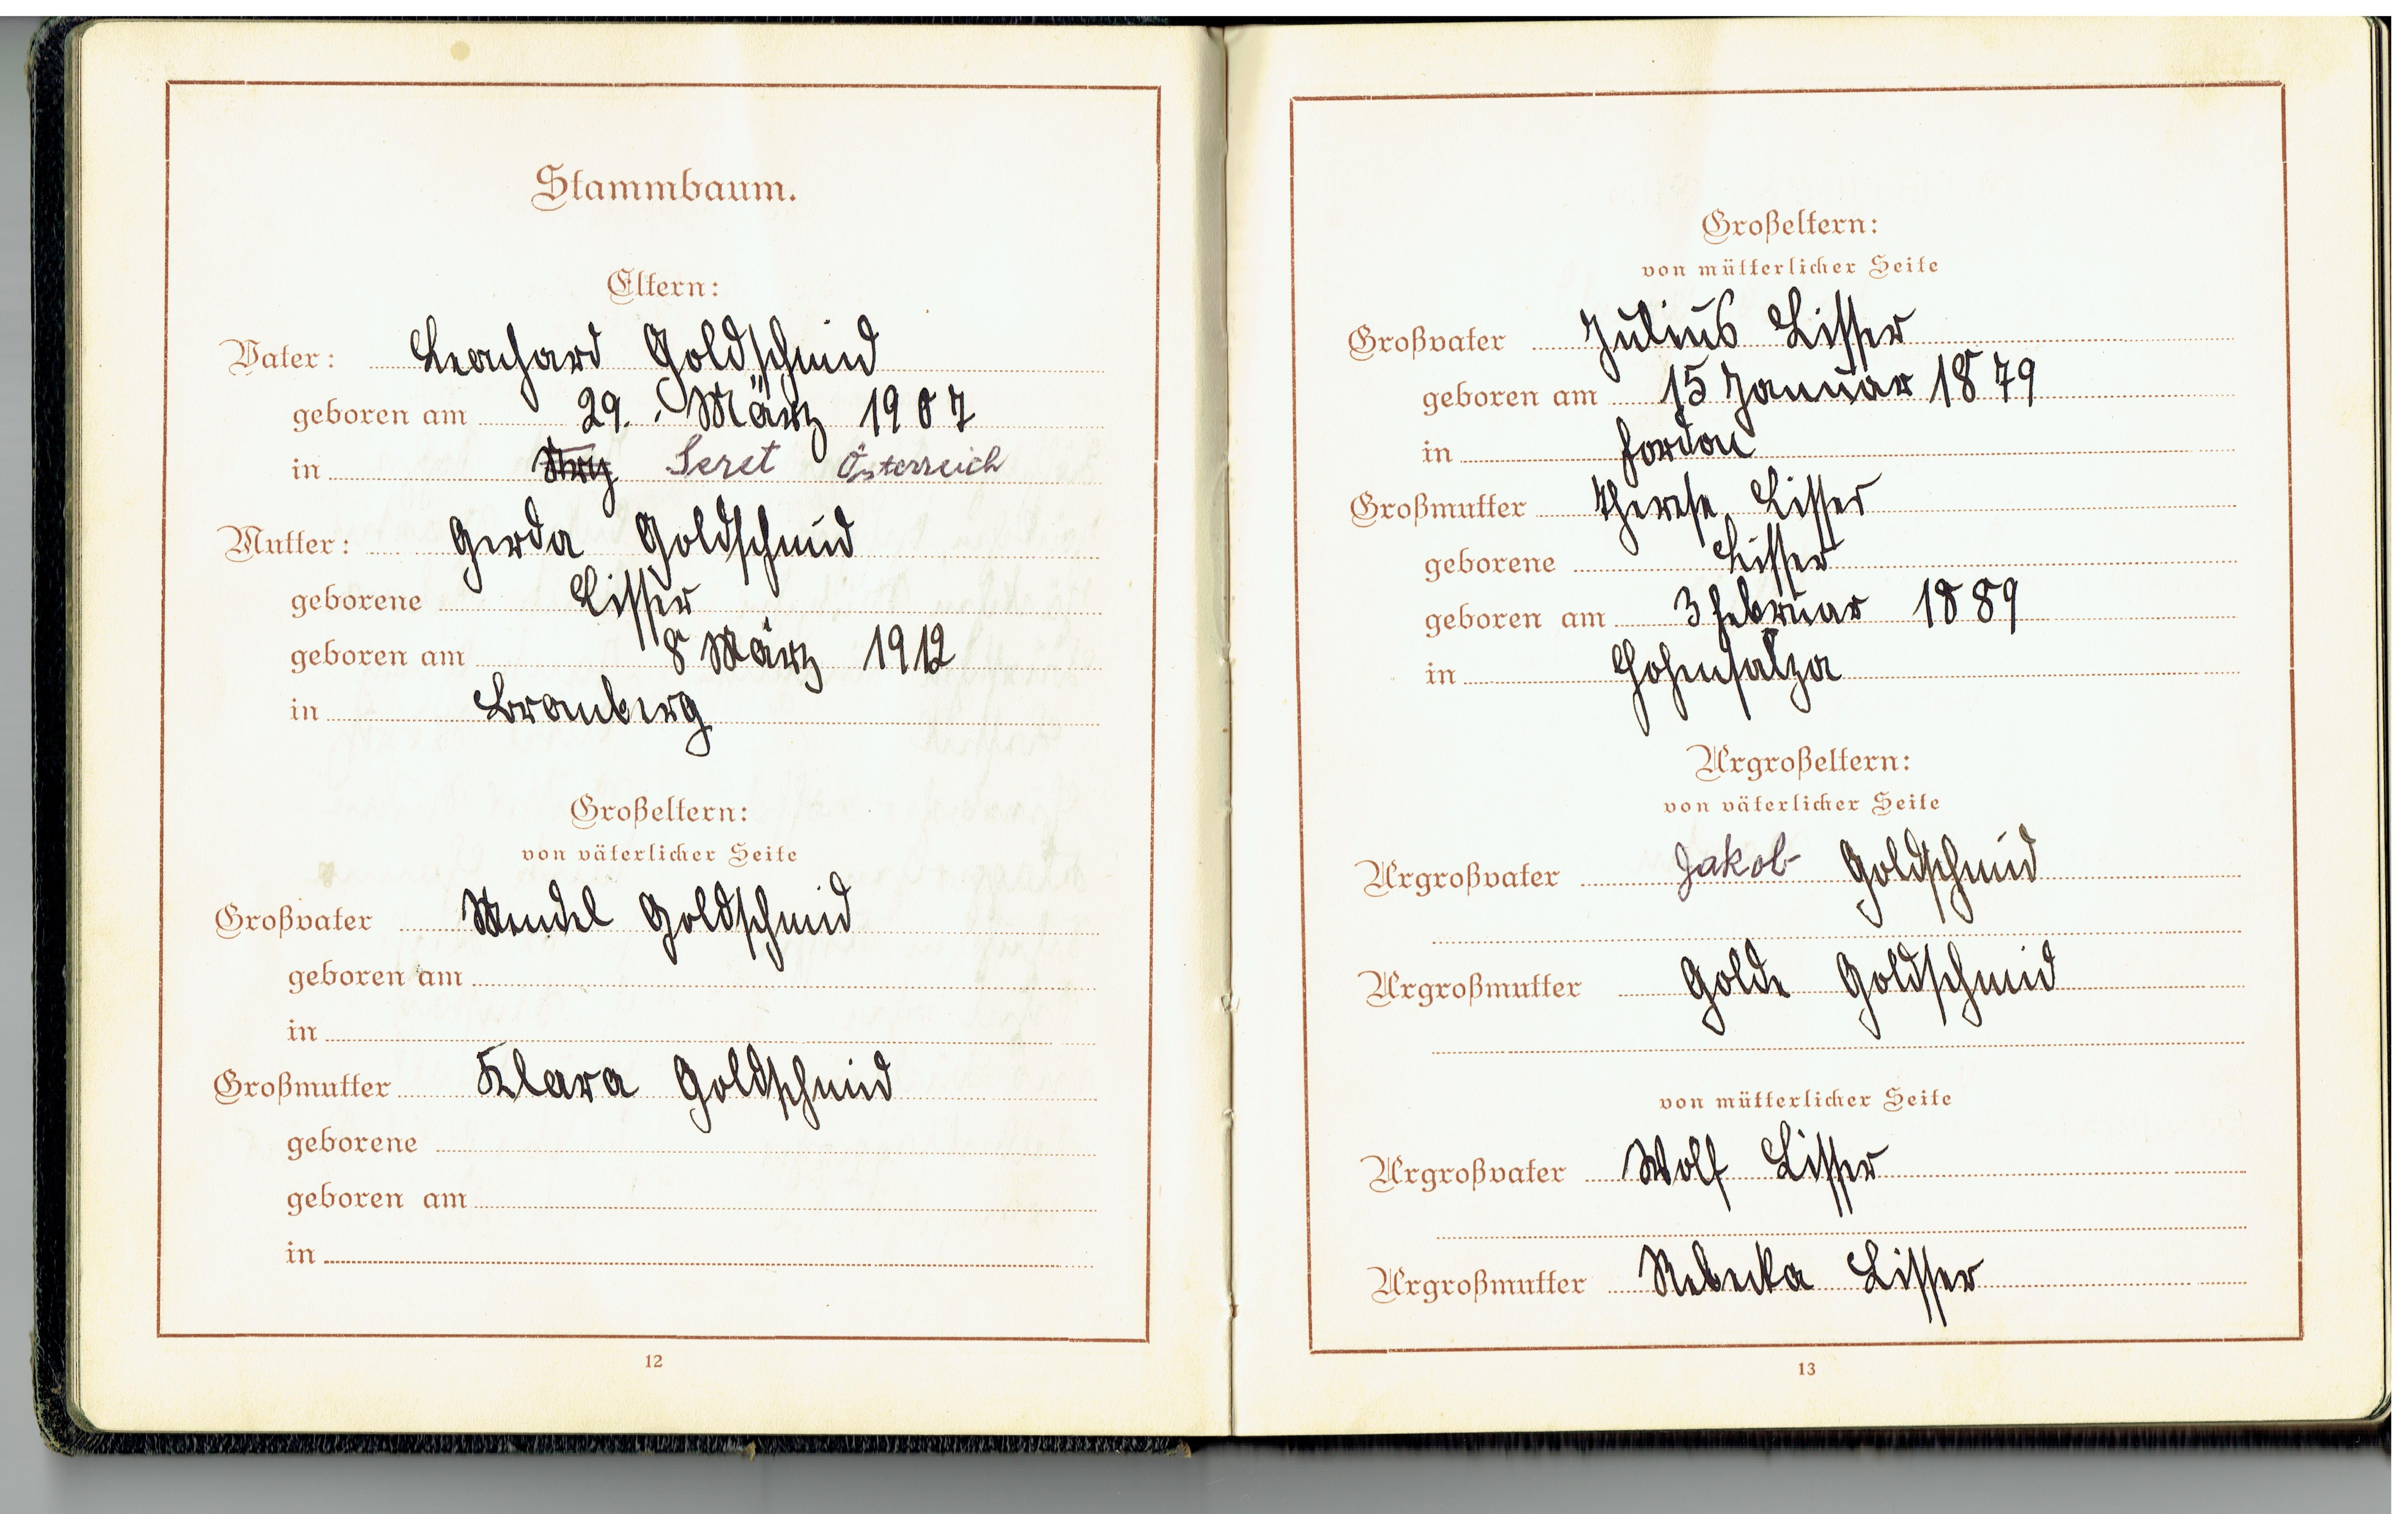 Stammbaum.
Eltern:
Vater: Leonhard Goldschmid
geboren am 29. März 1907
in Stry Seret Österreich
Mutter: Gerda Goldschmid
geborene Lisser
geboren am 8 März 1912
in Bromberg
Großeltern:
von väterlicher Seite
Großvater Mendel Goldschmid
geboren am
in
Großmutter Klara Goldschmid
geborene
geboren am
in
12
Großeltern:
von mütterlicher Seite
Großvater Julius Lisser
geboren am 15 Januar 1879
in Fordon
Großmutter Therese Lisser
geborene Lisser
geboren am 3 Februar 1889
in Hohensalza
Urgroßeltern:
von väterlicher Seite
Urgroßvater Jakob Goldschmid
Urgroßmutter Golde Goldschmid
von mütterlicher Seite
Urgroßvater Wolf Lisser
Urgroßmutter Rebecka Lisser
13